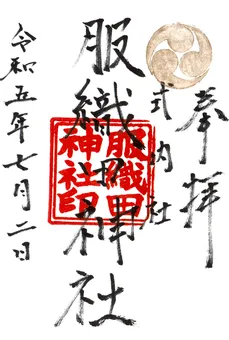 奉拝
式内社
服織田神社
服織田
神社印
令和五年七月二日